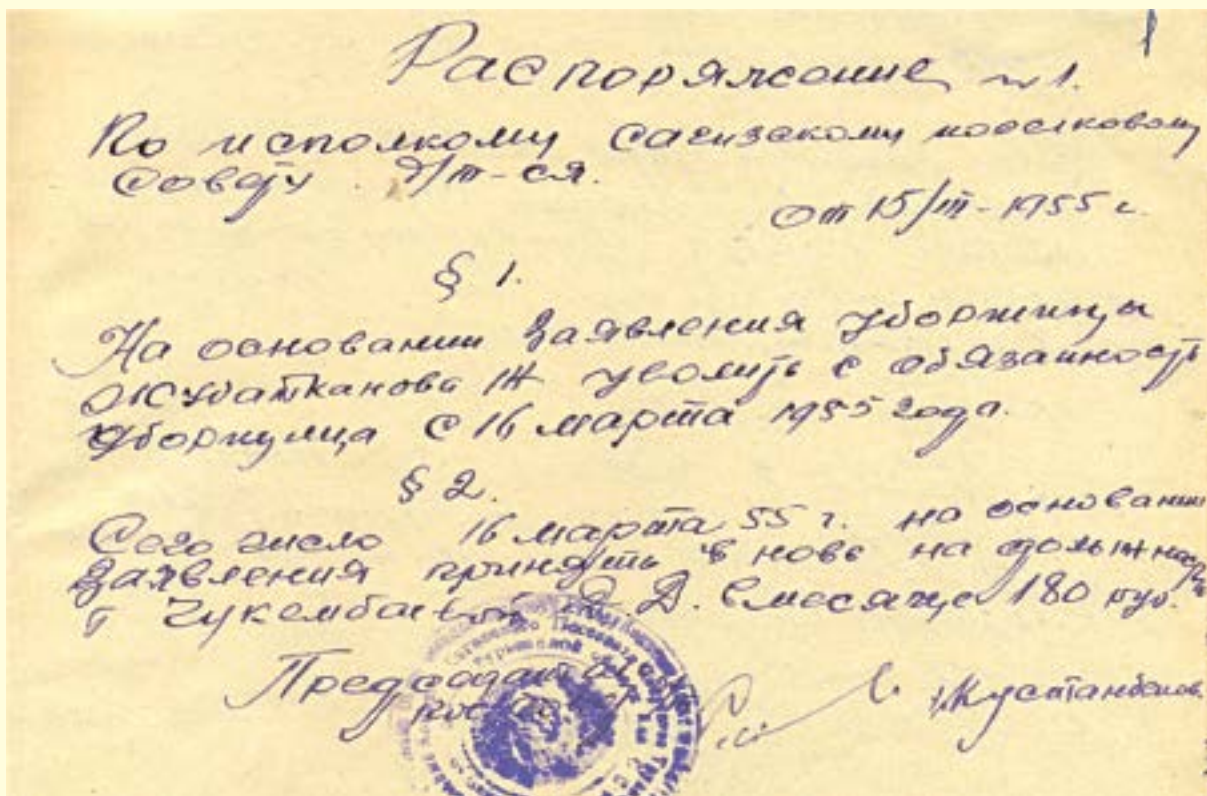 1
Распоряжение № 1.
По исполкому Сагизскому поселковому
Совету д/т-ся.
от 15/III-1955 г.
§ 1.
На основании Заявления уборжицы
Жубатканова Ж уволить с обязанность
уборжулца с 16 марта 1955 года.
§ 2.
Сего число 16 марта 55 г. на основании
Заявления принять в новь на должность
г Чукембаевой Д. в месяце 180 руб.
Председатель
пос
Кустанбаков